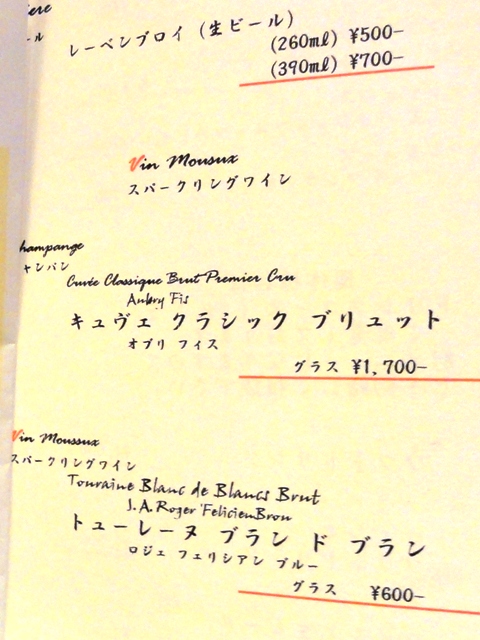 iere
ール
レーベンブロイ (生ビール)
(260ml) ¥500-
(390ml) ¥700-
Vin Mousux
スパークリングワイン
hampange
ャンパン
Cuvée Classique Brut Premier Cru
Aubry Fis
キュヴェ クラシック ブリュット
オブリ フィス
グラス ¥1,700-
Vin Moussux
スパークリングワイン
Touraine Blanc de Blancs Brut
J.A.Roger FelicienBrou
トゥーレーヌ ブラン ド ブラン
ロジェ フェリシアン ブルー
グラス ¥600-